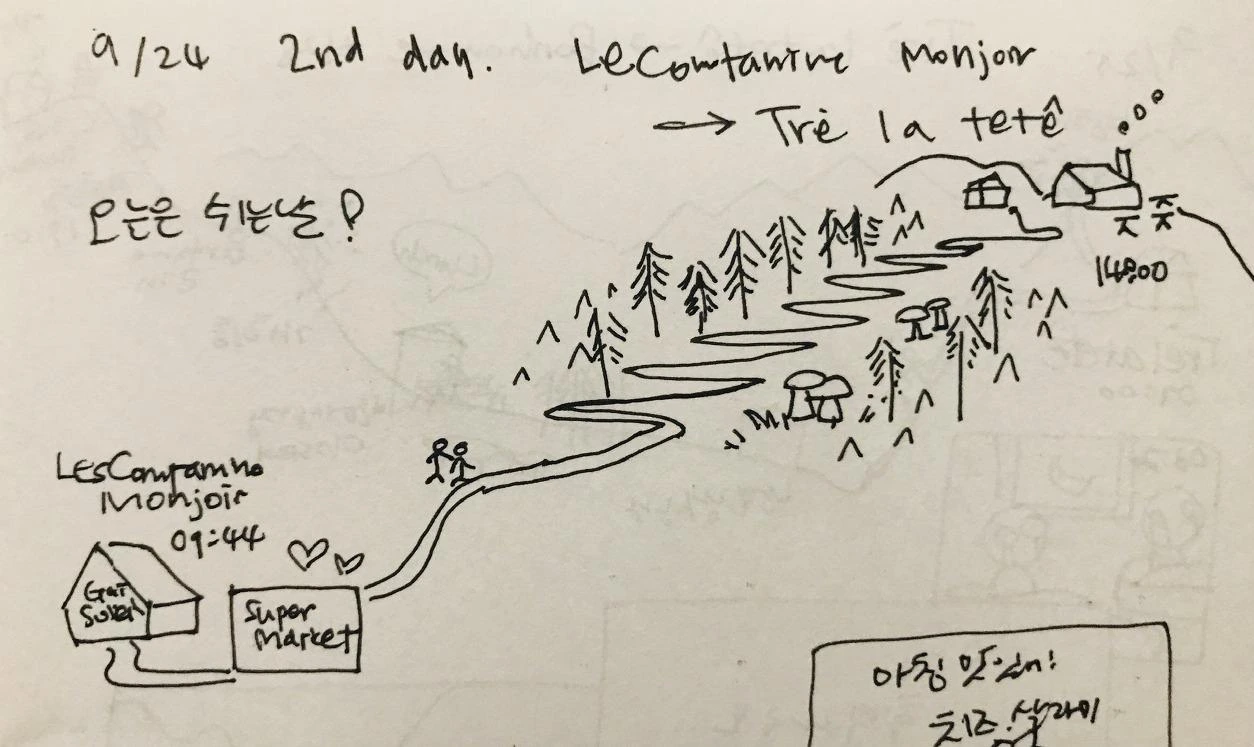 9/24 2nd day. Le Contamine Monjoir
→ Trè la tetê
오늘은 쉬는날?
14:00
LES Contamine
Monjoir
09:44
Super
Market
아침 맛있네!
치즈